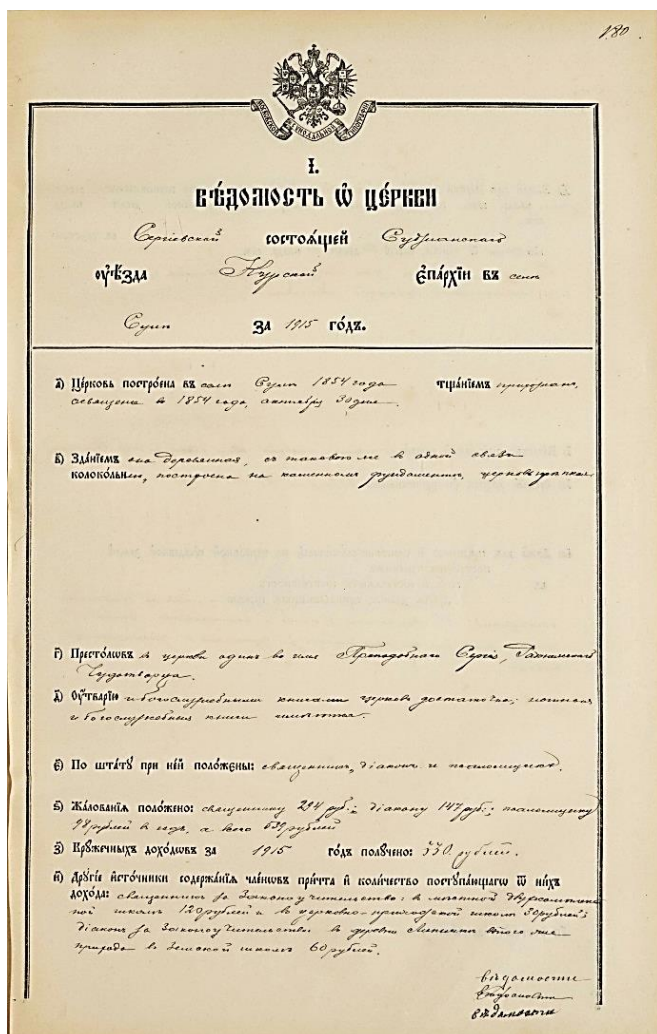 180
МОСКОВСКОЙ СѴНОДАЛЬНОЙ ТИПОГРАФІИ
І.
ВѢ́ДОМОСТЬ Ѿ ЦЕ́РКВИ
Сергіевской СОСТОѦ́ЩЕЙ Суджанскаго
ОУ҆Ѣ́ЗДА Курской Є҆ПА́РХІИ ВЪ селѣ
ЗА 1915 ГО́ДЪ.
а҃) Це́рковь постро́ена въ селѣ 1854 года тща́нїемъ прихожан,
освящена в 1854 году, октября 30 дня.
в҃) Зда́нїемъ она деревянная, съ таковою же в одной связи
колоко́льнею, построена на каменномъ фундаментѣ, церковь
г҃) Престо́лѡвъ в церкви один во имя Преподобнаго Сергія, Радонежскаго
Чудотворца.
д҃) Оу҆́тварїю и богослужебными книгами церковь достаточна;
и богослужебныя книги имѣются.
є҃) По шта́тꙋ при не́й поло́жены: священникъ, діаконъ и псаломщикъ.
ѕ҃) Жа́лованїѧ поло́жено: священнику 294 руб.; діакону 147 руб.; псаломщику
98 рублей в годъ, а всего 539 рублей
з҃) Крꙋ́жечныхъ дохо́дѡвъ за 1915 го́дъ полꙋ́чено: 330 рублей.
и҃) Дрꙋгі́е и҆сто́чники содержа́нїѧ чле́нѡвъ при́чта и҆ коли́чество постꙋпа́ющагѡ ѿ ни́хъ
дохо́да: священникъ за Законоучительство: в мѣстной двухкомплект-
ной школѣ 120 рублей и в церковно-приходской школѣ 30 рублей;
діаконъ за Законоучительство в деревни этого же
прихода в Земской школѣ 60 рублей.
вѣдомости
вѣдомости